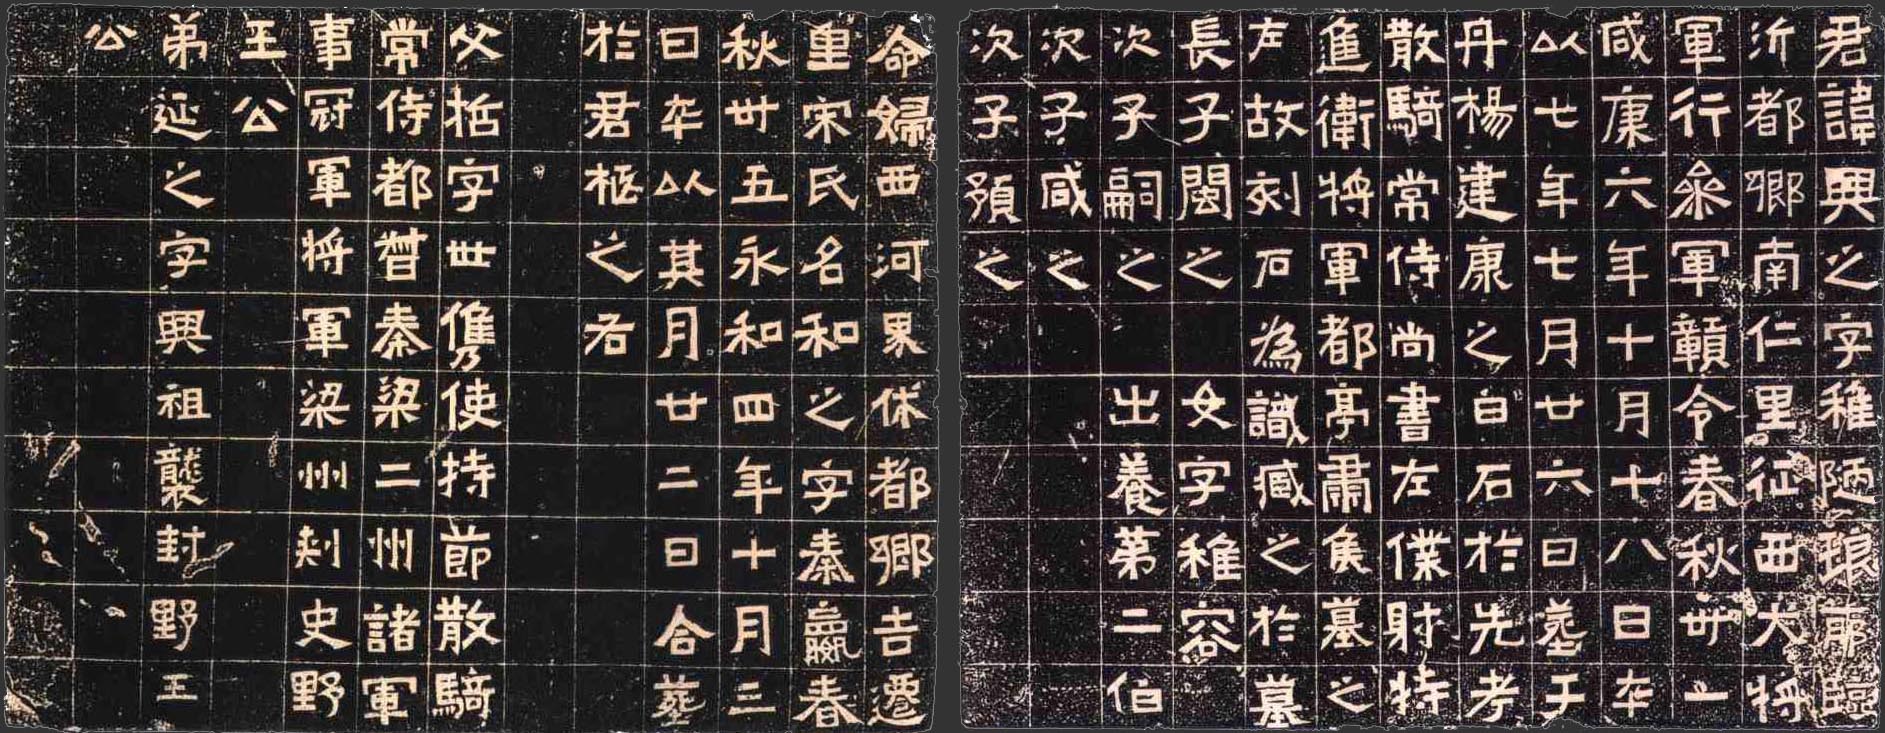 君諱興之字稚陋琅耶臨
沂都鄉南仁里征西大將
軍行參軍贛令春秋卅一
咸康六年十月十八日卒
以七年七月廿六日塟于
丹楊建康之白石於先考
散騎常侍尚書左僕射特
進衛將軍都亭肅侯墓之
左故刻石為識臧之於墓
長子閩之 女字稚容
次子嗣之 出養第二伯
次子咸之
次子預之
命婦西河界休都鄉吉遷
里宋氏名和之字秦嬴春
秋卅五永和四年十月三
日卒以其月廿二日合葬
於君柩之右
父栝字世儁使持節散騎
常侍都督秦梁二州諸軍
事冠軍將軍梁州刺史野
王公
弟延之字興祖襲封野王
公